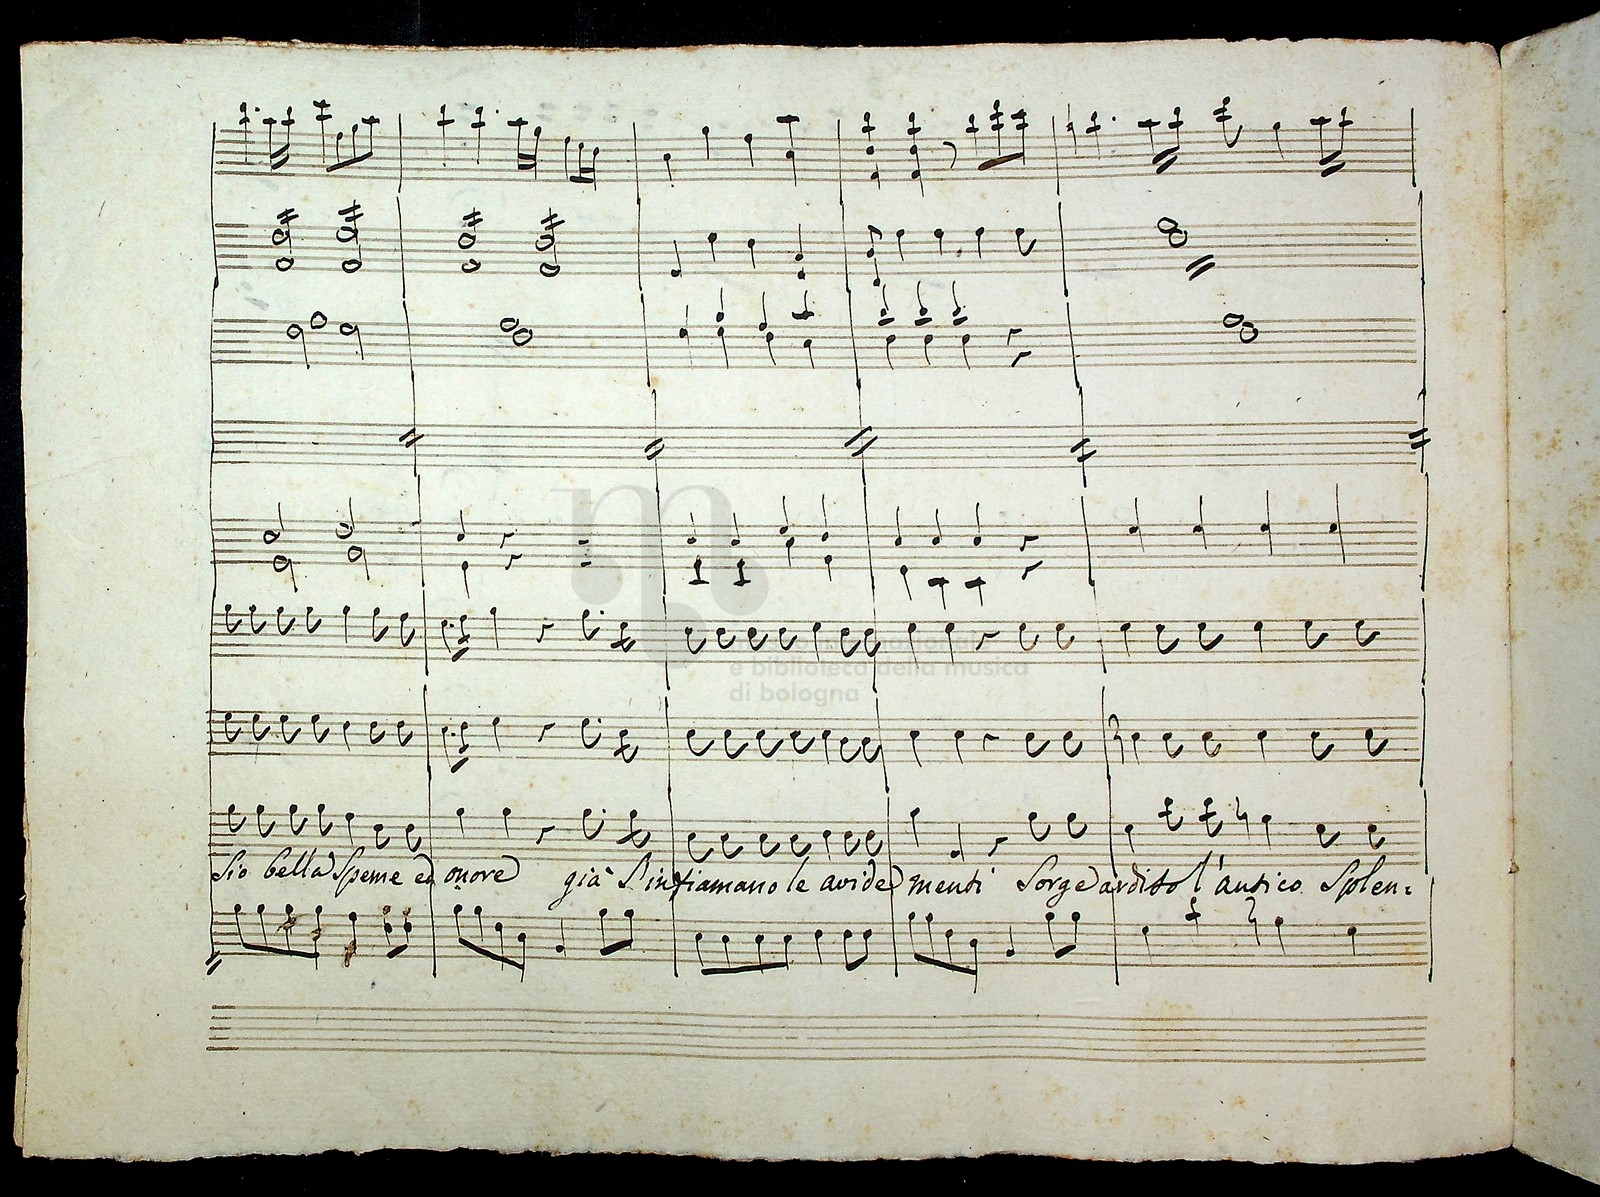 e biblioteca della musica
di bologna
Sio bella Speme ed onore già S'infiamano le avide menti Sorge ardito l'antico Splen=